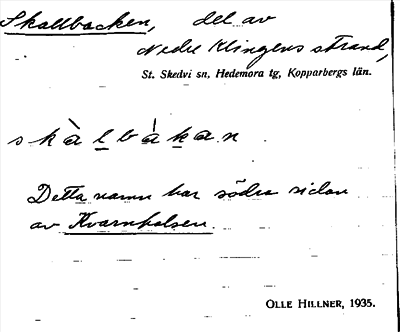 Skallbacken, del av
Nedre Klingens strand,
St. Skedvi sn, Hedemora tg, Kopparbergs län.
skàlbàkan.
Detta namn har södra sidan
av Kvarnholsen.
OLLE HILLNER, 1935.